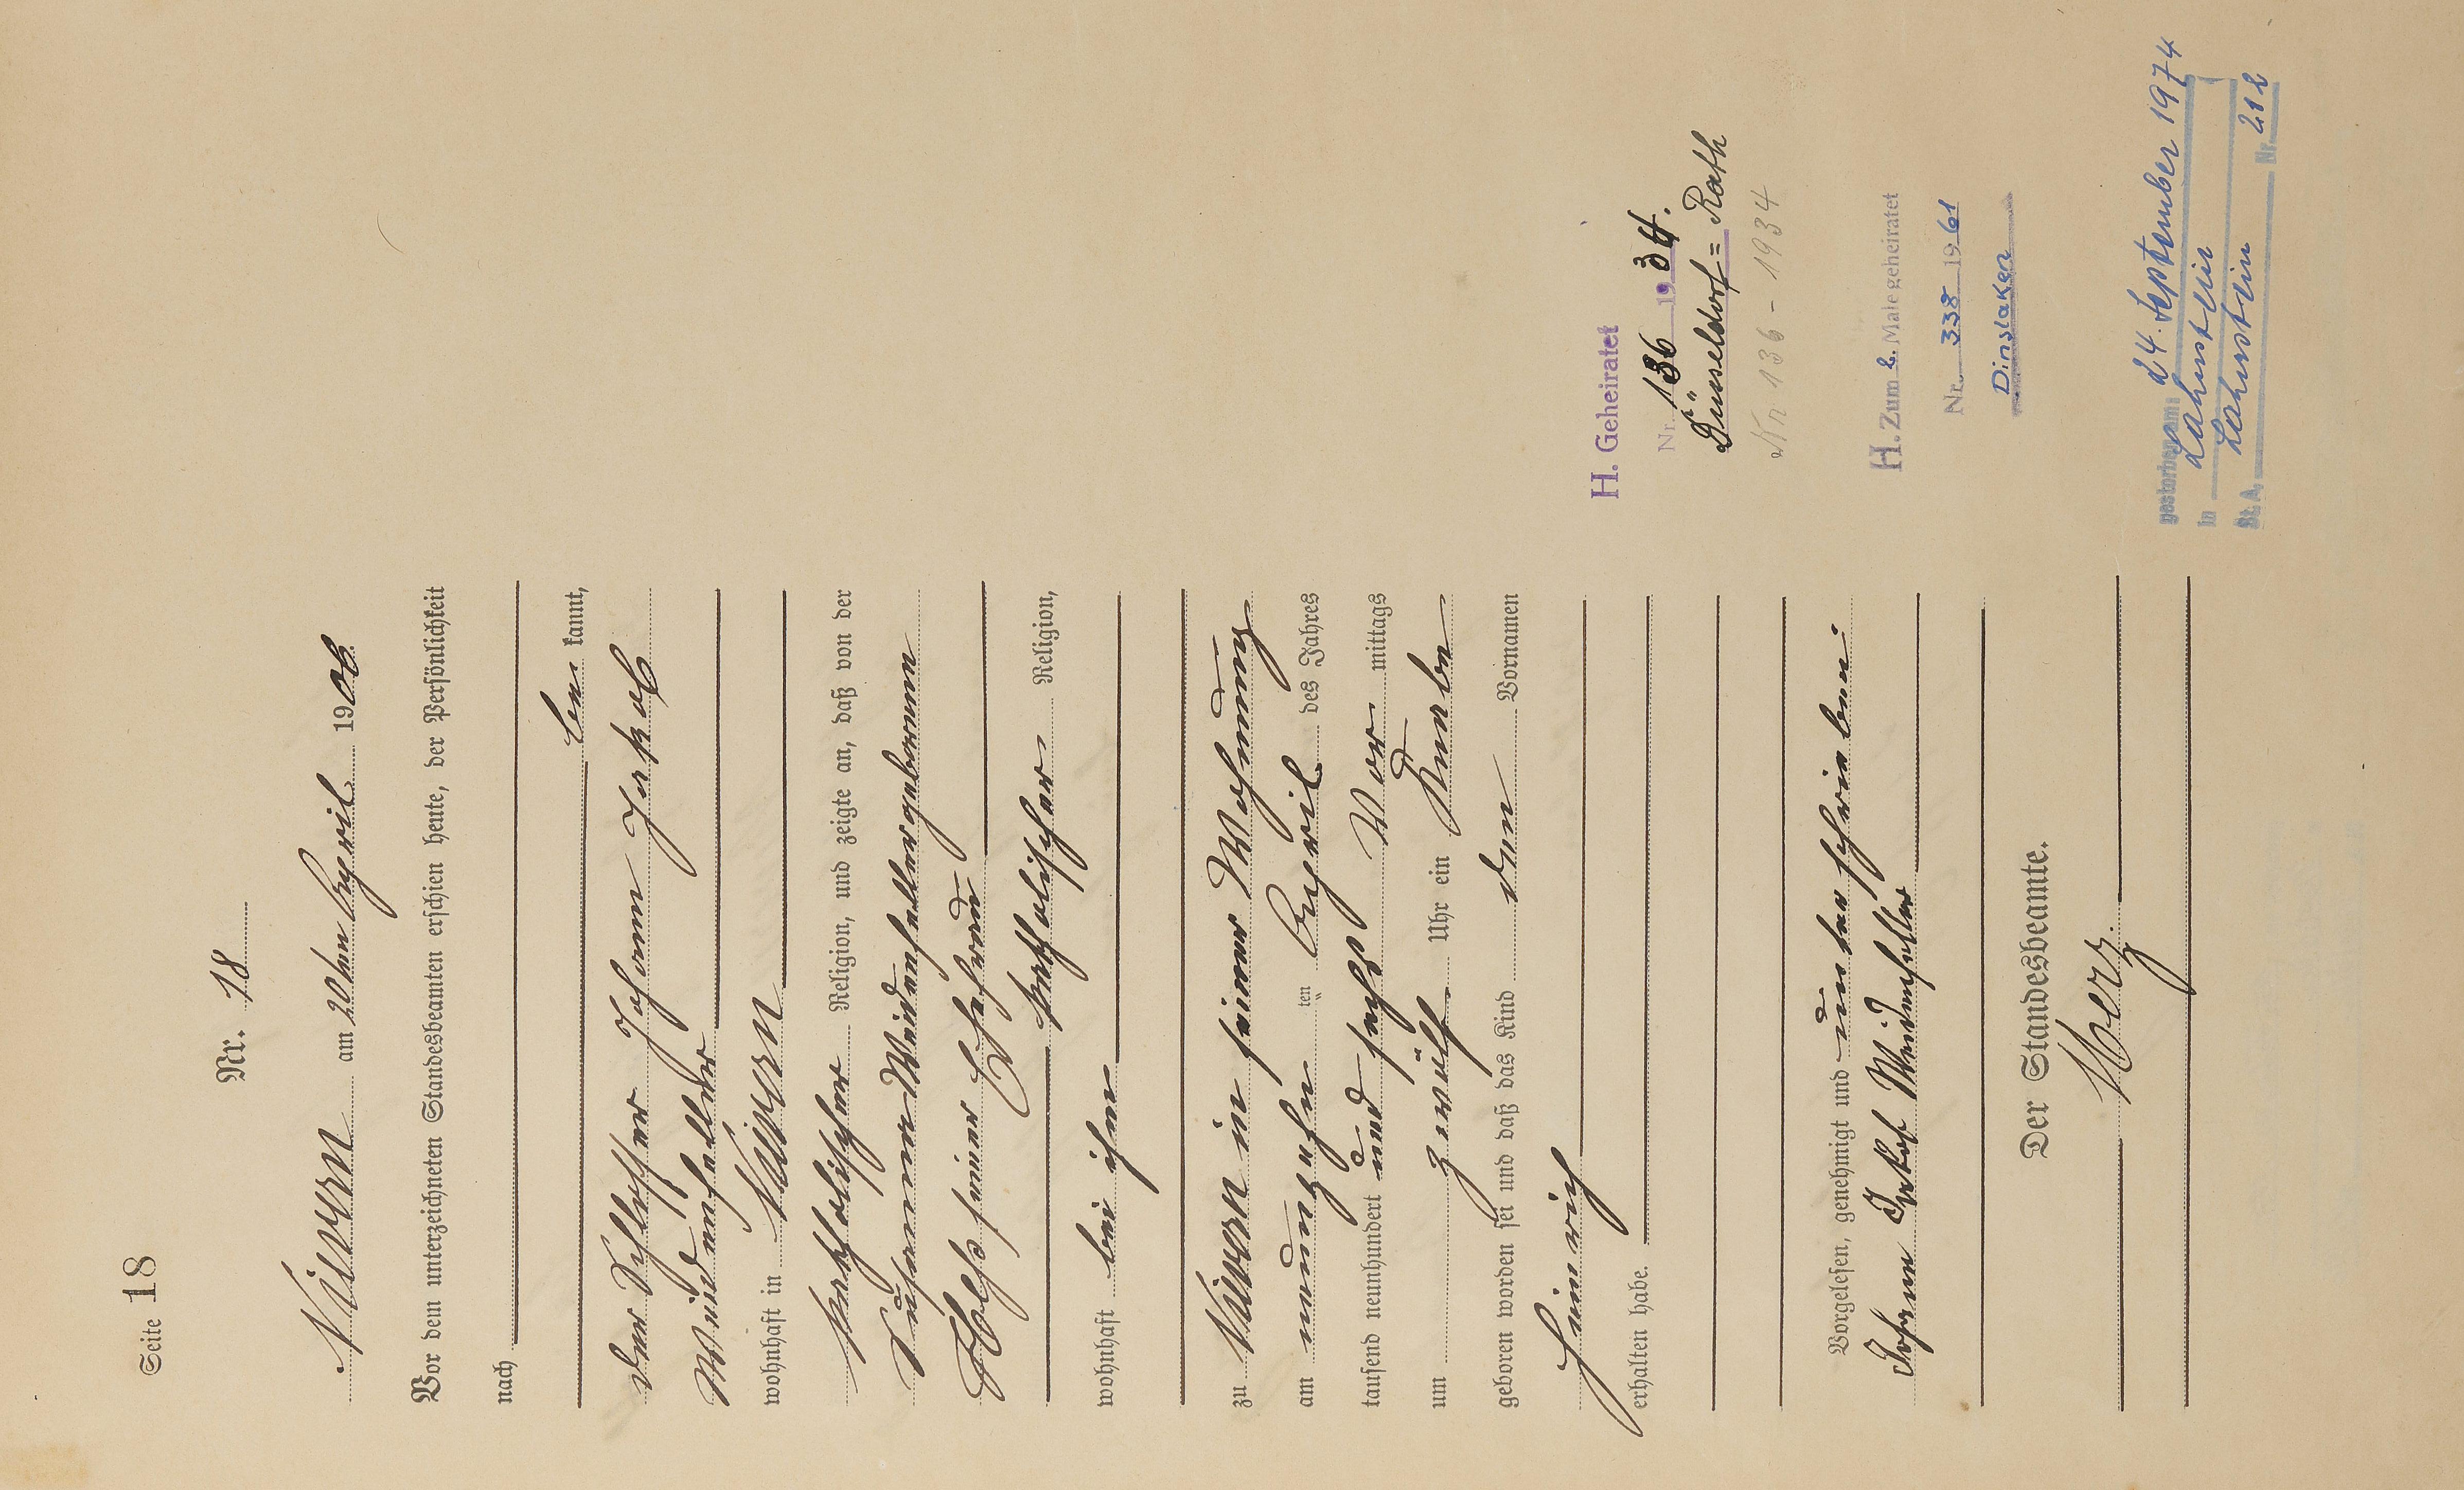 Seite 18
Nr. 18
Nievern am 20ten April 1906.
Vor dem unterzeichneten Standesbeamten erschien heute, der Persönlichkeit
nach
be kannt,
der Schlosser Johann Jakob
Weidenfeller
wohnhaft in Nievern
katholischer Religion, und zeigte an, daß von der
Susanna Weidenfeller geborenen
seiner Ehefrau
katholischer Religion,
wohnhaft bei ihm
zu Nievern in seiner Wohnung
am neunzehn ten April des Jahres
tausend neunhundert und sechs Vor mittags
um zwölf Uhr ein Knabe
geboren worden sei und daß das Kind den Vornamen
Heinrich
erhalten habe.
Vorgelesen, genehmigt und unterschrieben:
Johann Jakob Weidenfeller
Der Standesbeamte.
Herz.
H. Geheiratet
Nr. 136 1934.
Düsseldorf=Rath
Nr 136 - 1934
H. Zum 2. Male geheiratet
Nr. 338 1961
Dinslaken
gestorben am: 24. September 1974
in Lahnstein
St.A. Lahnstein Nr. 212